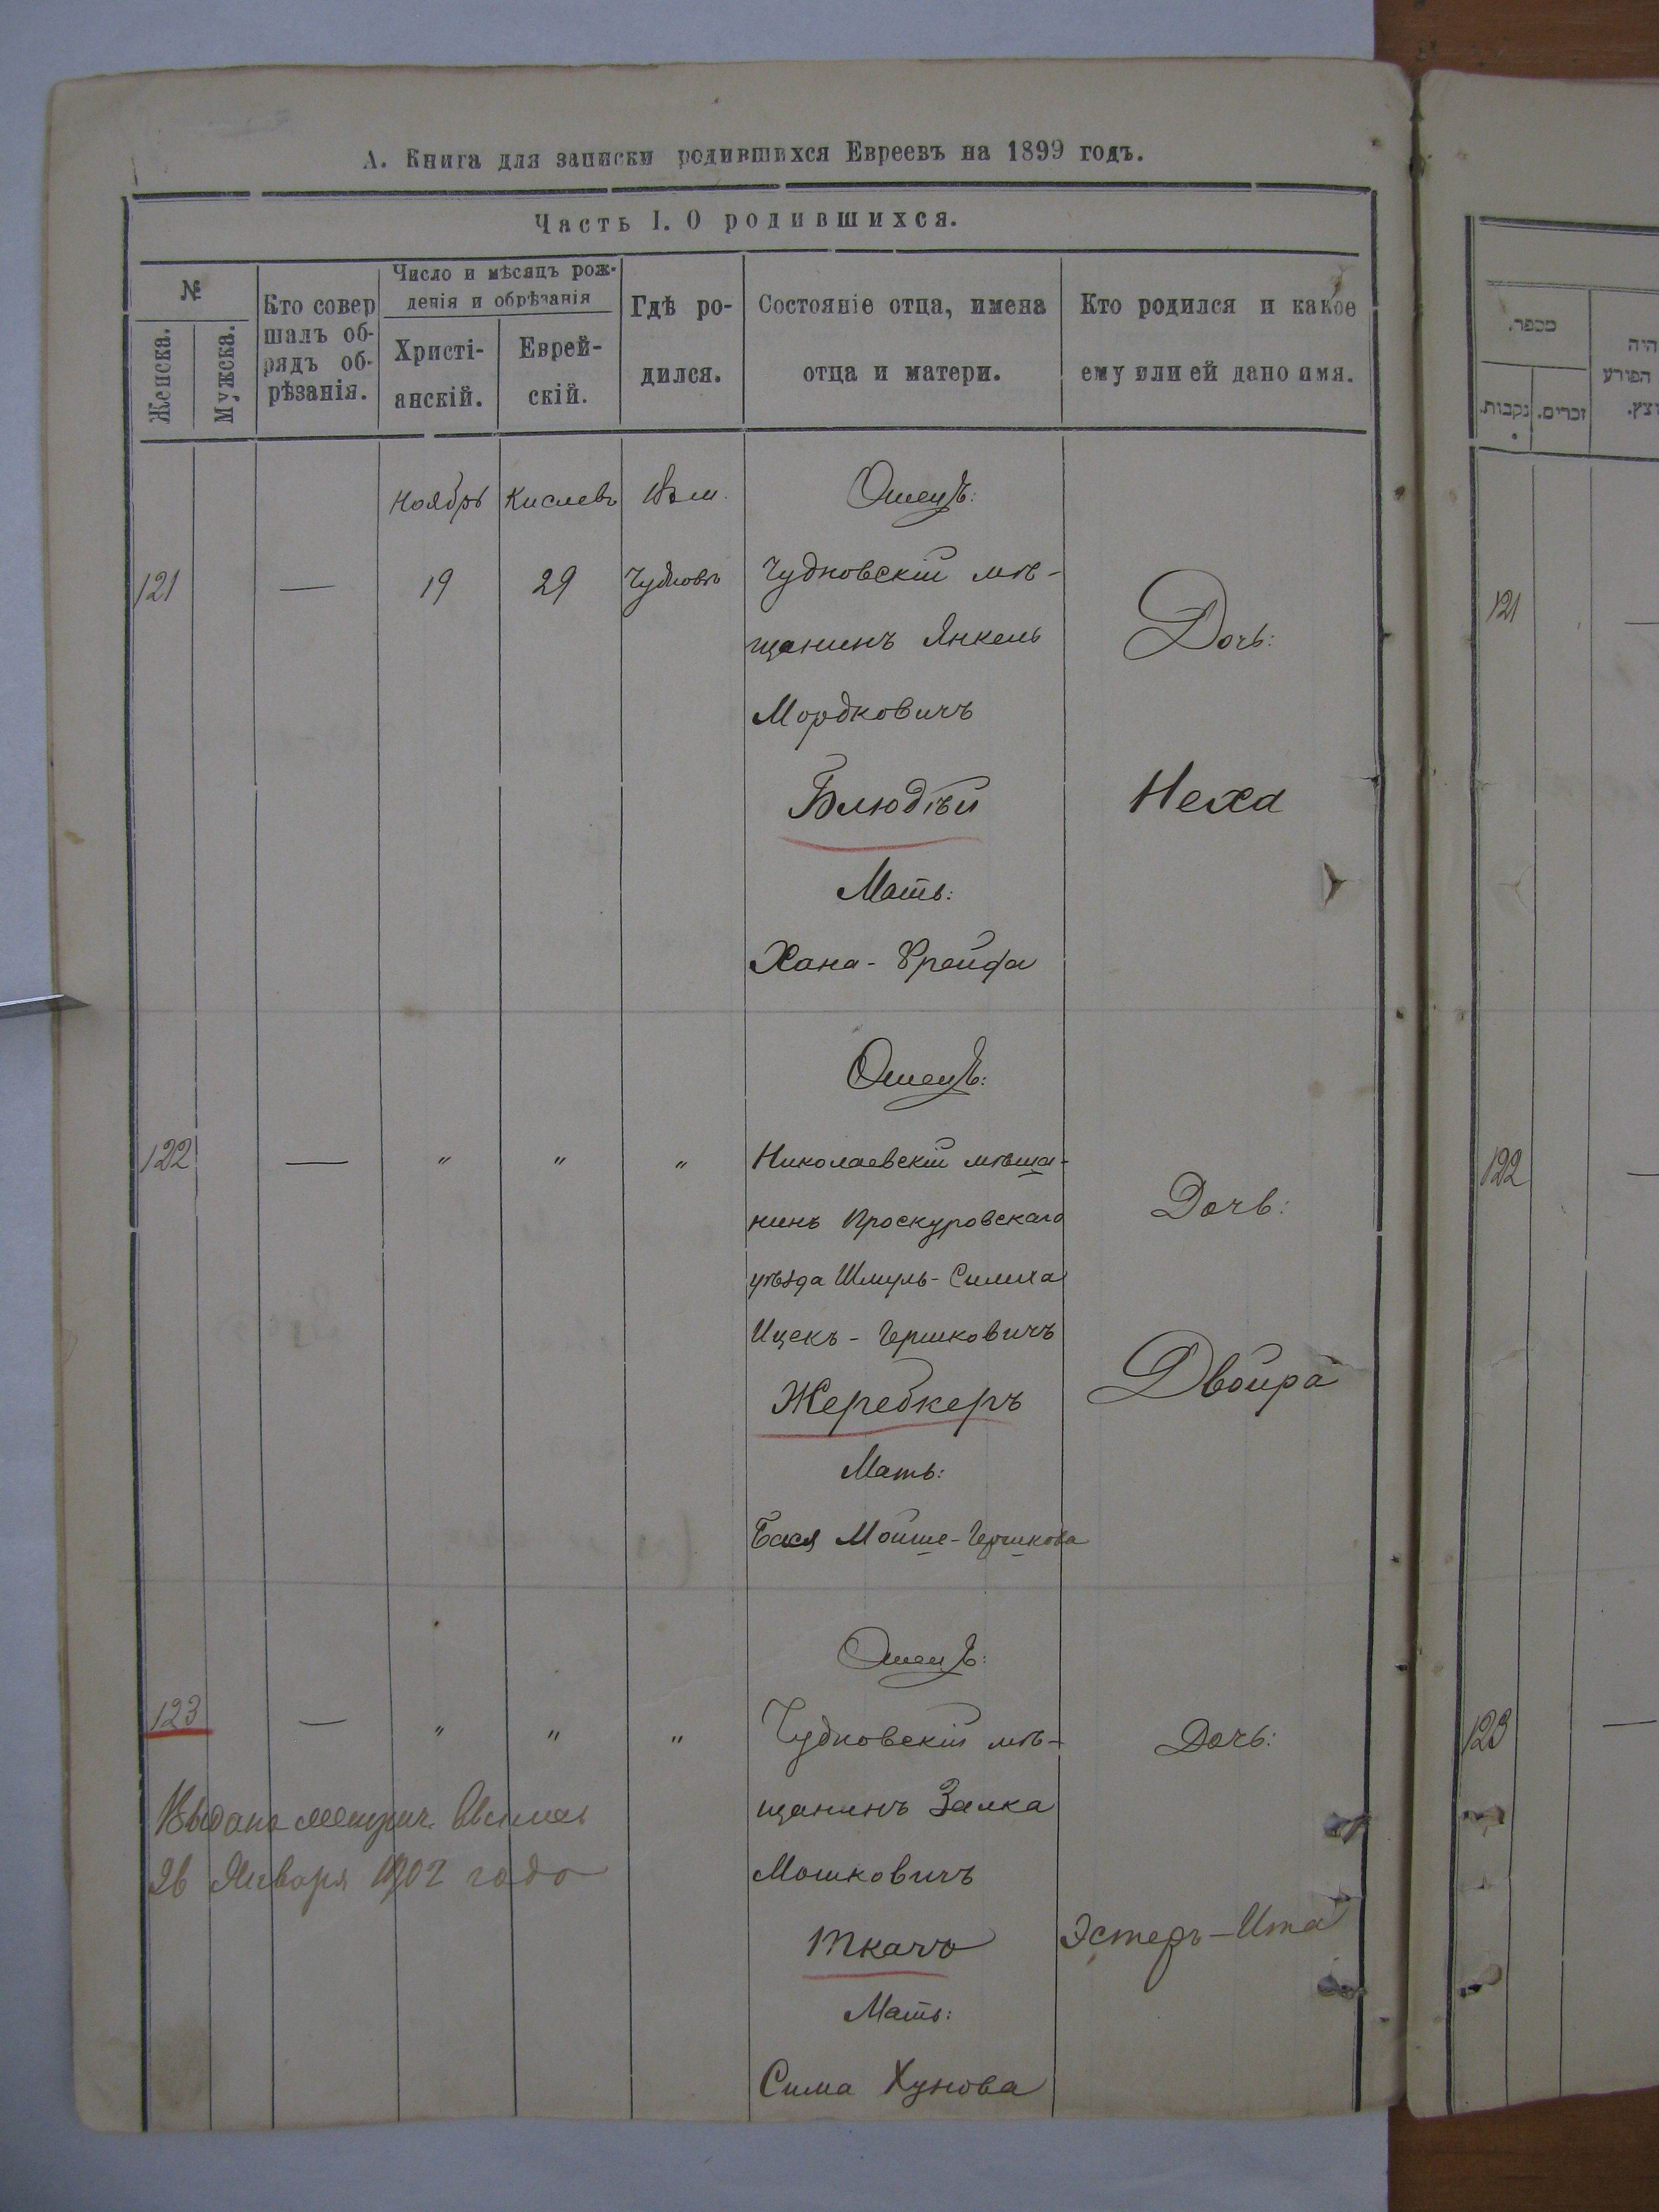 А. Книга для записки родившихся Евреевъ на 1899 годъ.
Часть I. О родившихся.
№
Женска.
Мужска.
Кто совер
шалъ об-
рядъ об-
рѣзанія.
Число и мѣсяцъ рож-
денія и обрѣзанія
Христі-
анскій.
Еврей-
скій.
Гдѣ ро-
дился.
Состояніе отца, имена
отца и матери.
Кто родился и какое
ему или ей дано имя.
Ноябрь Кислевъ Въ м.
Отецъ:
121 — 19 29 Чудновѣ
Чудновскій мѣ-
щанинъ Янкель
Мордковичъ
Блюдѣй
Мать:
Хана-Фрейда
Дочь:
Неха
Отецъ:
122 — " " "
Николаевскій мѣща-
нинъ Проскуровскаго
уѣзда Шмуль-Симха
Ицекъ-Гершковичъ
Жеребкеръ
Мать:
Бася Мойше-Гершкова
Дочь:
Двойра
Отецъ:
123 — " " "
Чудновскій мѣ-
щанинъ Залка
Мошковичъ
Ткачъ
Мать:
Сима Хунова
Дочь:
Эстеръ-Ита
Выдана метрич.
26 Января 1902 года
מספר.
נקבות.
זכרים.
היה
הפורע
121
122
123